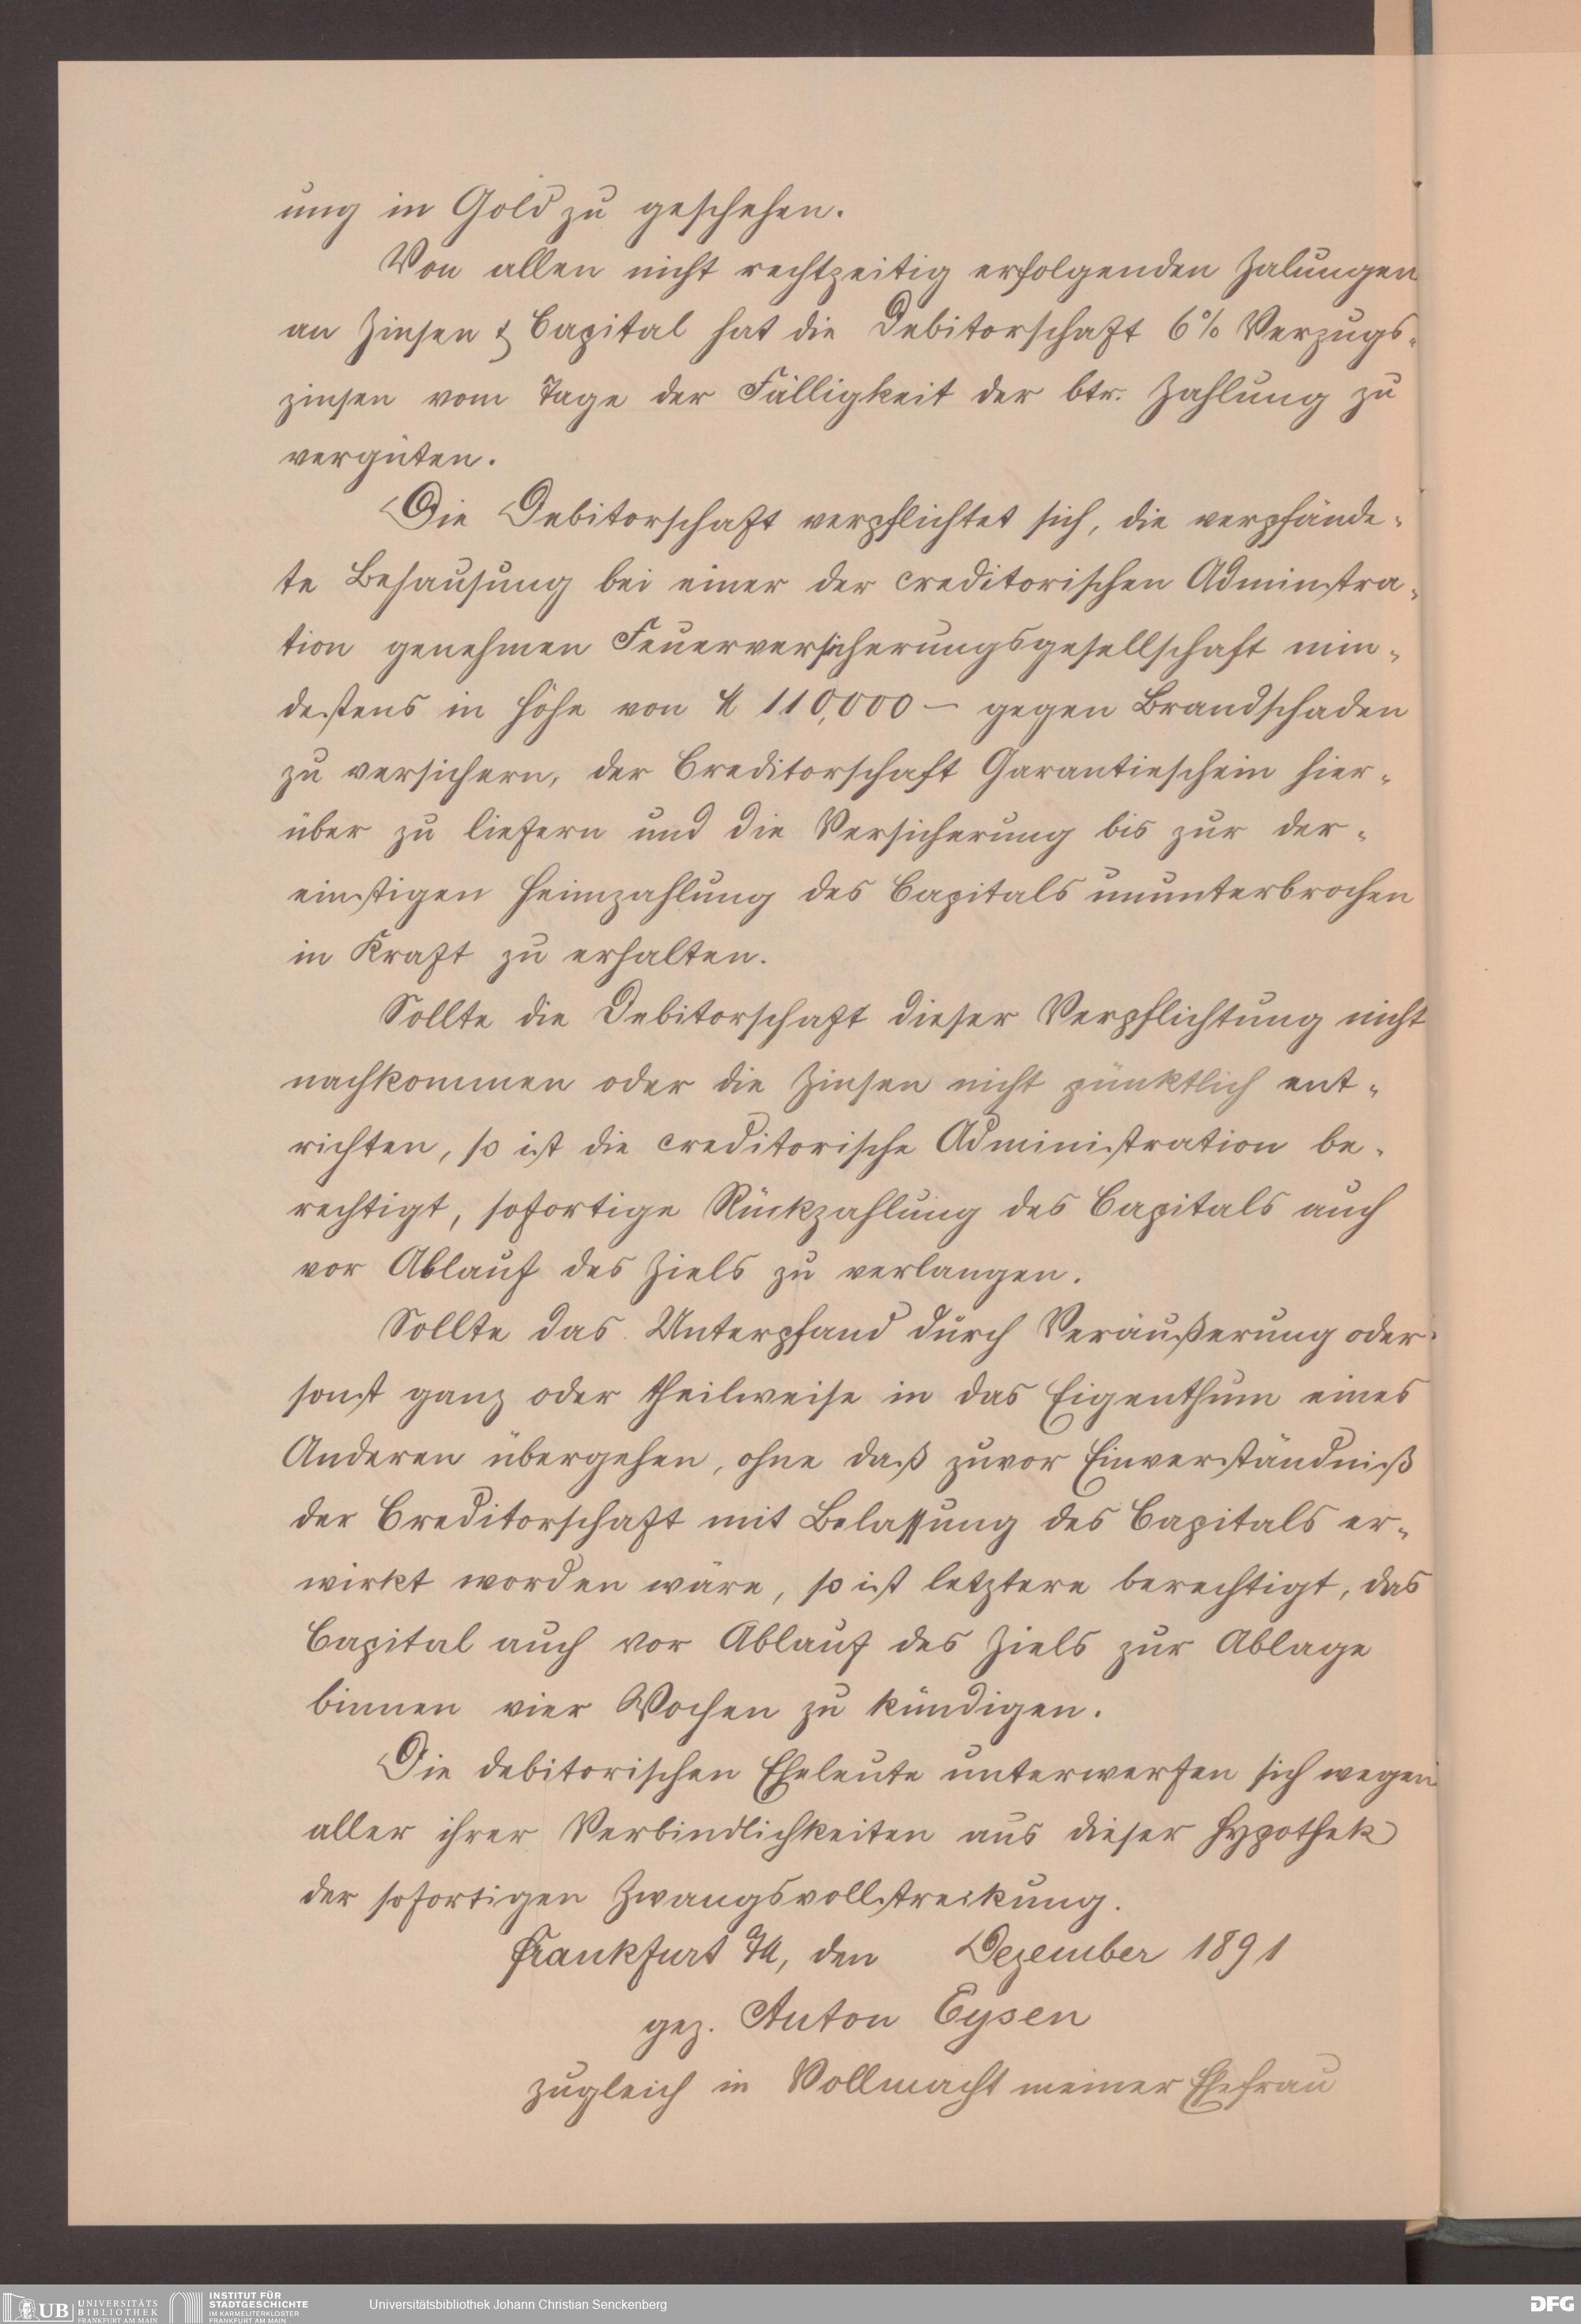 ung in Gold zu geschehen.
Von allen nicht rechtzeitig erfolgenden Zalungen
an Zinsen & Capital hat die Debitorschaft 6% Verzugs-
zinsen vom Tage der Fälligkeit der btr. Zahlung zu
vergüten.
Die Debitorschaft verpflichtet sich, die verpfände-
te Behausung bei einer der creditorischen Adminstra-
tion genehmen Feuerversicherungsgesellschaft min-
destens in Höhe von ℳ 110,000 – gegen Brandschaden
zu versichern, der Creditorschaft Garantieschein hier-
über zu liefern und die Versicherung bis zur der-
einstigen Heimzahlung des Capitals ununterbrochen
in Kraft zu erhalten.
Sollte die Debitorschaft dieser Verpflichtung nicht
nachkommen oder die Zinsen nicht pünktlich ent-
richten, so ist die creditorische Administration be-
rechtigt, sofortige Rückzahlung des Capitals auch
vor Ablauf des Ziels zu verlangen.
Sollte das Unterpfand durch Veräußerung oder
sonst ganz oder theilweise in das Eigenthum eines
Anderen übergehen, ohne daß zuvor Einverständniß
der Creditorschaft mit Belassung des Capitals er-
wirkt worden wäre, so ist letztere berechtigt, das
Capital auch vor Ablauf des Ziels zur Ablage
binnen vier Wochen zu kündigen.
Die debitorischen Eheleute unterwerfen sich wegen
aller ihrer Verbindlichkeiten aus dieser Hypothek
der sofortigen Zwangsvollstreckung.
Frankfurt a/M, den Dezember 1891
gez. Anton Eysen
zugleich in Vollmacht meiner Ehefrau
UB UNIVERSITÄTS
BIBLIOTHEK
FRANKFURT AM MAIN
INSTITUT FÜR
STADTGESCHICHTE
IM KARMELITERKLOSTER
FRANKFURT AM MAIN
Universitätsbibliothek Johann Christian Senckenberg
DFG